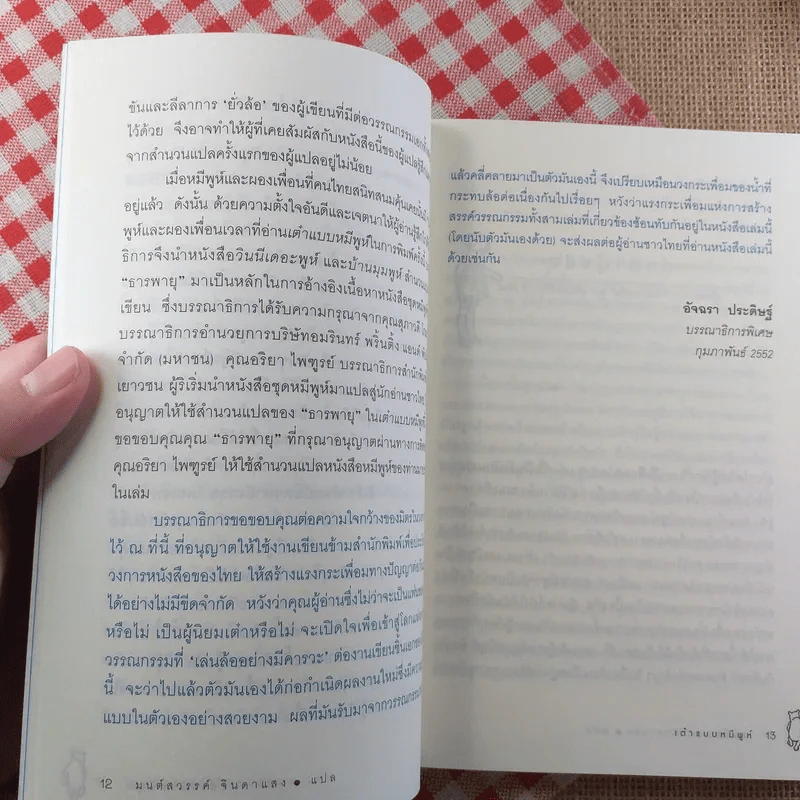 ขันและลีลาการ ‘ยั่วล้อ’ ของผู้เขียนที่มีต่อวรรณกรรมเอก
ไว้ด้วย จึงอาจทำให้ผู้ที่เคยสัมผัสกับหนังสือนี้ของผู้แปลรู้สึก
จากสำนวนแปลครั้งแรกของผู้แปลอยู่ไม่น้อย
เมื่อหมีพูห์และผองเพื่อนที่คนไทยสนิทสนมคุ้นเคย
อยู่แล้ว ดังนั้น ด้วยความตั้งใจอันดีและเจตนาให้ผู้อ่านรู้สึก
พูห์และผองเพื่อนเวลาที่อ่านเต๋าแบบหมีพูห์ในการพิมพ์ครั้ง
ธิการจึงนำหนังสือวินนีเดอะพูห์ และบ้านมุมพูห์ สำนวน
“ธารพายุ” มาเป็นหลักในการอ้างอิงเนื้อหาหนังสือชุดหมี
เขียน ซึ่งบรรณาธิการได้รับความกรุณาจากคุณสุภาวดี
บรรณาธิการอำนวยการบริษัทอมรินทร์ พริ้นติ้ง แอนด์
จำกัด (มหาชน) คุณอริยา ไพฑูรย์ บรรณาธิการสำนักพิมพ์
เยาวชน ผู้ริเริ่มนำหนังสือชุดหมีพูห์มาแปลสู่นักอ่านชาวไทย
อนุญาตให้ใช้สำนวนแปลของ “ธารพายุ” ในเต๋าแบบหมีพูห์
ขอขอบคุณคุณ “ธารพายุ” ที่กรุณาอนุญาตผ่านทางการ
คุณอริยา ไพฑูรย์ ให้ใช้สำนวนแปลหนังสือหมีพูห์ของท่านมา
ในเล่ม
บรรณาธิการขอขอบคุณต่อความใจกว้างของมิตร
ไว้ ณ ที่นี้ ที่อนุญาตให้ใช้งานเขียนข้ามสำนักพิมพ์เพื่อ
วงการหนังสือของไทย ให้สร้างแรงกระเพื่อมทางปัญญา
ได้อย่างไม่มีขีดจำกัด หวังว่าคุณผู้อ่านซึ่งไม่ว่าจะเป็น
หรือไม่ เป็นผู้นิยมเต๋าหรือไม่ จะเปิดใจเพื่อเข้าสู่โลก
วรรณกรรมที่ ‘เล่นล้ออย่างมีคารวะ’ ต่องานเขียนชิ้นเอก
นี้ จะว่าไปแล้วตัวมันเองได้ก่อกำเนิดผลงานใหม่ซึ่งมี
แบบในตัวเองอย่างสวยงาม ผลที่มันรับมาจากวรรณกรรม
12 มนต์สวรรค์ จินดาแสง ● แปล
แล้วคลี่คลายมาเป็นตัวมันเองนี้ จึงเปรียบเหมือนวงกระเพื่อมของน้ำที่
กระทบล้อต่อเนื่องกันไปเรื่อยๆ หวังว่าแรงกระเพื่อมแห่งการสร้าง
สรรค์วรรณกรรมทั้งสามเล่มที่เกี่ยวข้องซ้อนทับกันอยู่ในหนังสือเล่มนี้
(โดยนับตัวมันเองด้วย) จะส่งผลต่อผู้อ่านชาวไทยที่อ่านหนังสือเล่มนี้
ด้วยเช่นกัน
อัจฉรา ประดิษฐ์
บรรณาธิการพิเศษ
กุมภาพันธ์ 2552
เต๋าแบบหมีพูห์ 13